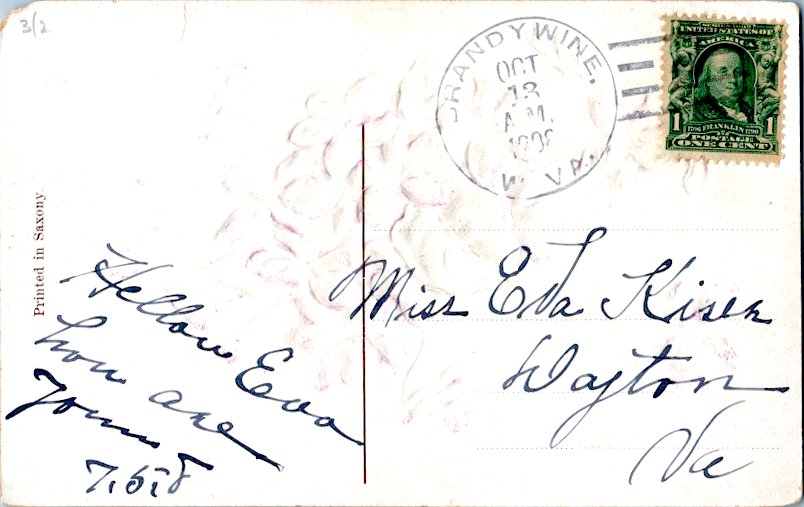 3/2
BRANDYWINE,
OCT
13
A.M.
1908
W. VA.
UNITED STATES OF
AMERICA
1 1
1706 FRANKLIN 1790
POSTAGE
ONE CENT
Printed in Saxony.
Miss Eva Kiser
Dayton
Va
Hellow Eva
how are